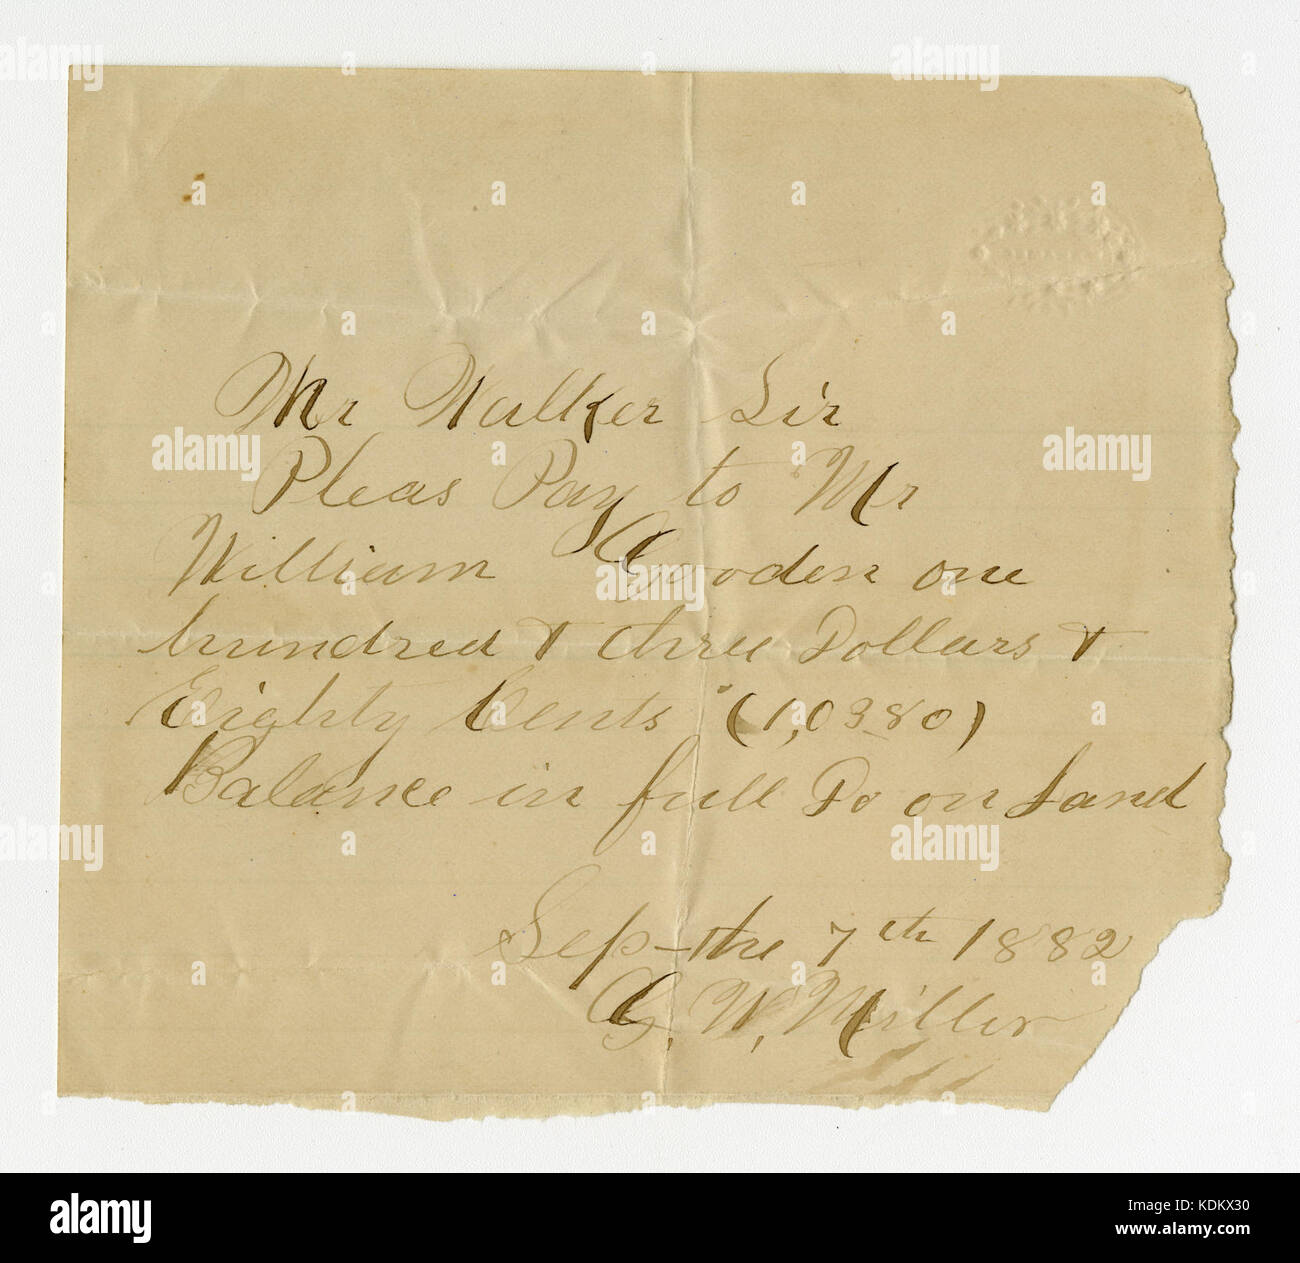 Mr Walker Sir
Pleas Pay to Mr
William Gooden one
hundred & three Dollars &
Eighty Cents (1,0380)
Balance in full Do on Land
Sep the 7th 1882
G, W, Miller
alamy
Image ID: KDKX30
www.alamy.com